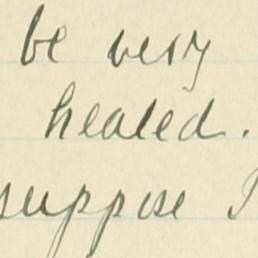 be very
healed.
suppose I